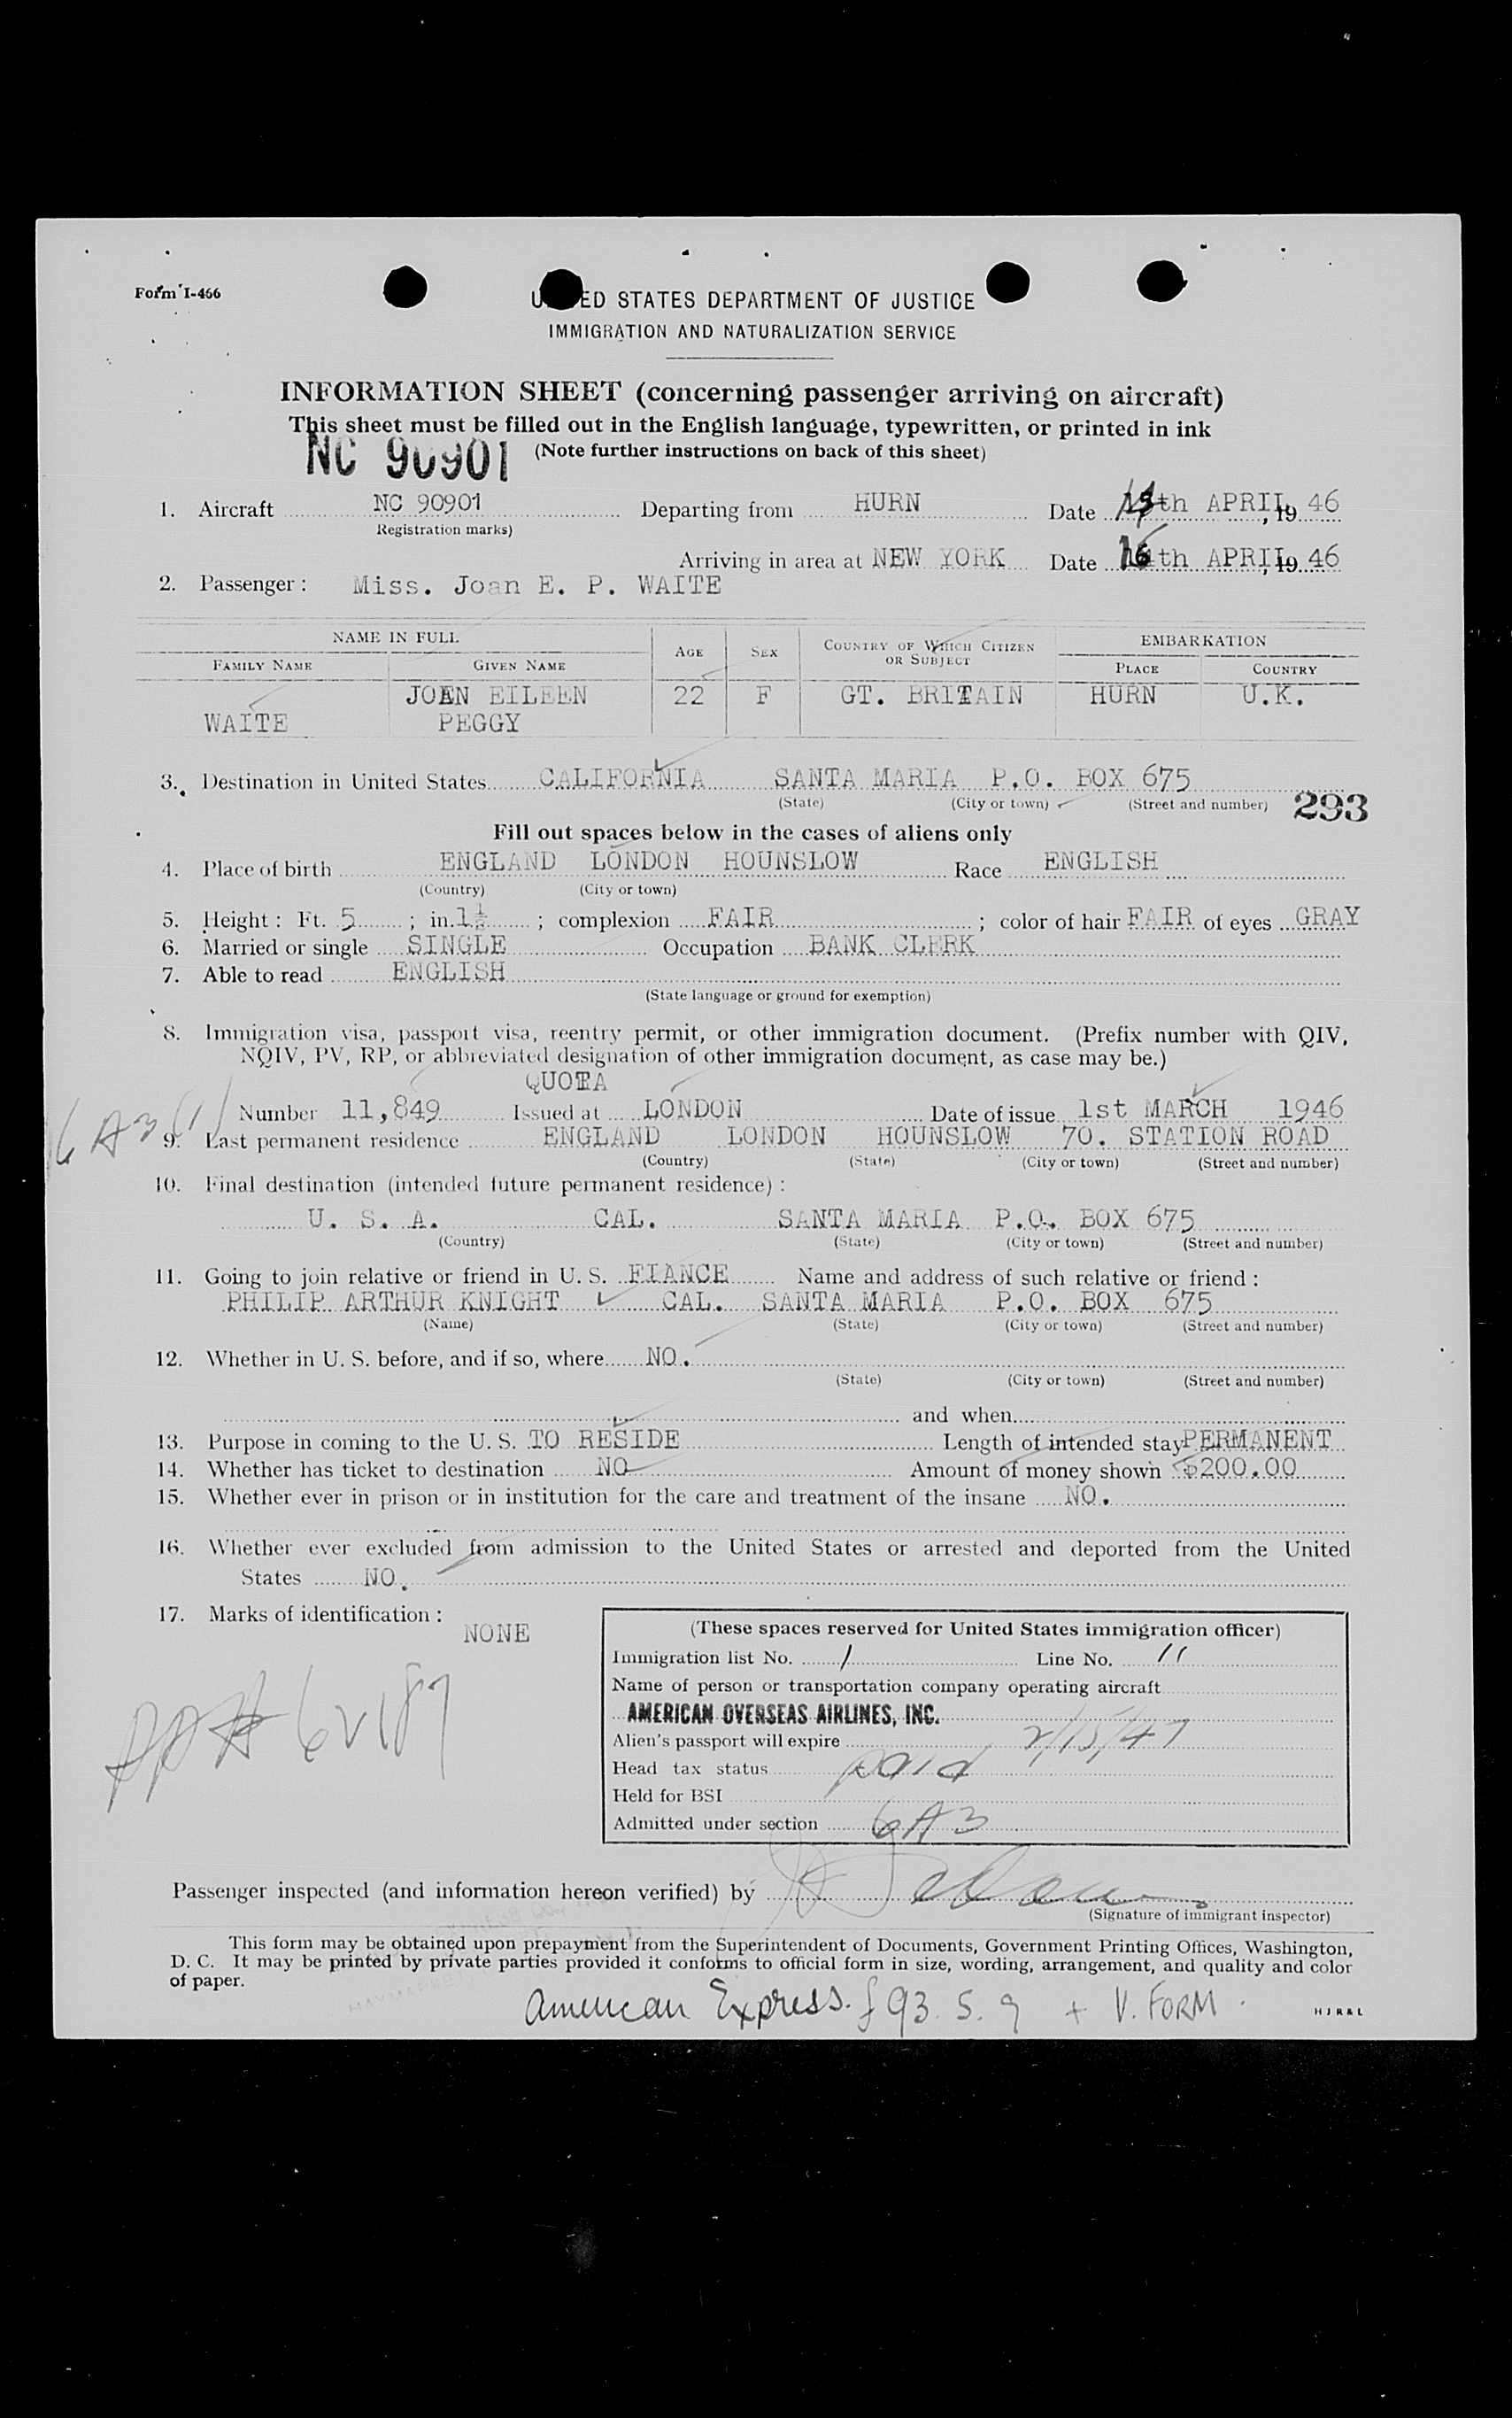 Form I-466
UNITED STATES DEPARTMENT OF JUSTICE
IMMIGRATION AND NATURALIZATION SERVICE
INFORMATION SHEET (concerning passenger arriving on aircraft)
This sheet must be filled out in the English language, typewritten, or printed in ink
NC 90901 (Note further instructions on back of this sheet)
1. Aircraft NC 90901 Departing from HURN Date th APRIL, 19 46
(Registration marks)
Arriving in area at NEW YORK Date 16th APRIL, 19 46
2. Passenger : Miss. Joan E. P. WAITE
NAME IN FULL AGE SEX COUNTRY OF WHICH CITIZEN OR SUBJECT EMBARKATION
FAMILY NAME GIVEN NAME PLACE COUNTRY
JOAN EILEEN 22 F GT. BRITAIN HURN U.K.
WAITE PEGGY
3. Destination in United States CALIFORNIA SANTA MARIA P.O. BOX 675
(State) (City or town) (Street and number) 293
Fill out spaces below in the cases of aliens only
4. Place of birth ENGLAND LONDON HOUNSLOW Race ENGLISH
(Country) (City or town)
5. Height : Ft. 5 ; in. 1½ ; complexion FAIR ; color of hair FAIR of eyes GRAY
6. Married or single SINGLE Occupation BANK CLERK
7. Able to read ENGLISH
(State language or ground for exemption)
8. Immigration visa, passport visa, reentry permit, or other immigration document. (Prefix number with QIV,
NQIV, PV, RP, or abbreviated designation of other immigration document, as case may be.)
QUOTA
Number 11,849 Issued at LONDON Date of issue 1st MARCH 1946
6A3(1)
9. Last permanent residence ENGLAND LONDON HOUNSLOW 70. STATION ROAD
(Country) (State) (City or town) (Street and number)
10. Final destination (intended future permanent residence) :
U. S. A. CAL. SANTA MARIA P.O. BOX 675
(Country) (State) (City or town) (Street and number)
11. Going to join relative or friend in U. S. FIANCE Name and address of such relative or friend :
PHILIP ARTHUR KNIGHT CAL. SANTA MARIA P.O. BOX 675
(Name) (State) (City or town) (Street and number)
12. Whether in U. S. before, and if so, where NO.
(State) (City or town) (Street and number)
and when
13. Purpose in coming to the U. S. TO RESIDE Length of intended stay PERMANENT
14. Whether has ticket to destination NO Amount of money shown $200.00
15. Whether ever in prison or in institution for the care and treatment of the insane NO.
16. Whether ever excluded from admission to the United States or arrested and deported from the United
States NO.
17. Marks of identification :
NONE
(These spaces reserved for United States immigration officer)
Immigration list No. 1 Line No. 11
Name of person or transportation company operating aircraft
AMERICAN OVERSEAS AIRLINES, INC.
Alien's passport will expire 2/15/47
Head tax status paid
Held for BSI
Admitted under section 6A3
PP# 62187
Passenger inspected (and information hereon verified) by
(Signature of immigrant inspector)
This form may be obtained upon prepayment from the Superintendent of Documents, Government Printing Offices, Washington,
D. C. It may be printed by private parties provided it conforms to official form in size, wording, arrangement, and quality and color
of paper.
American Express. £93. 5. 9 + V. FORM
H J R & L